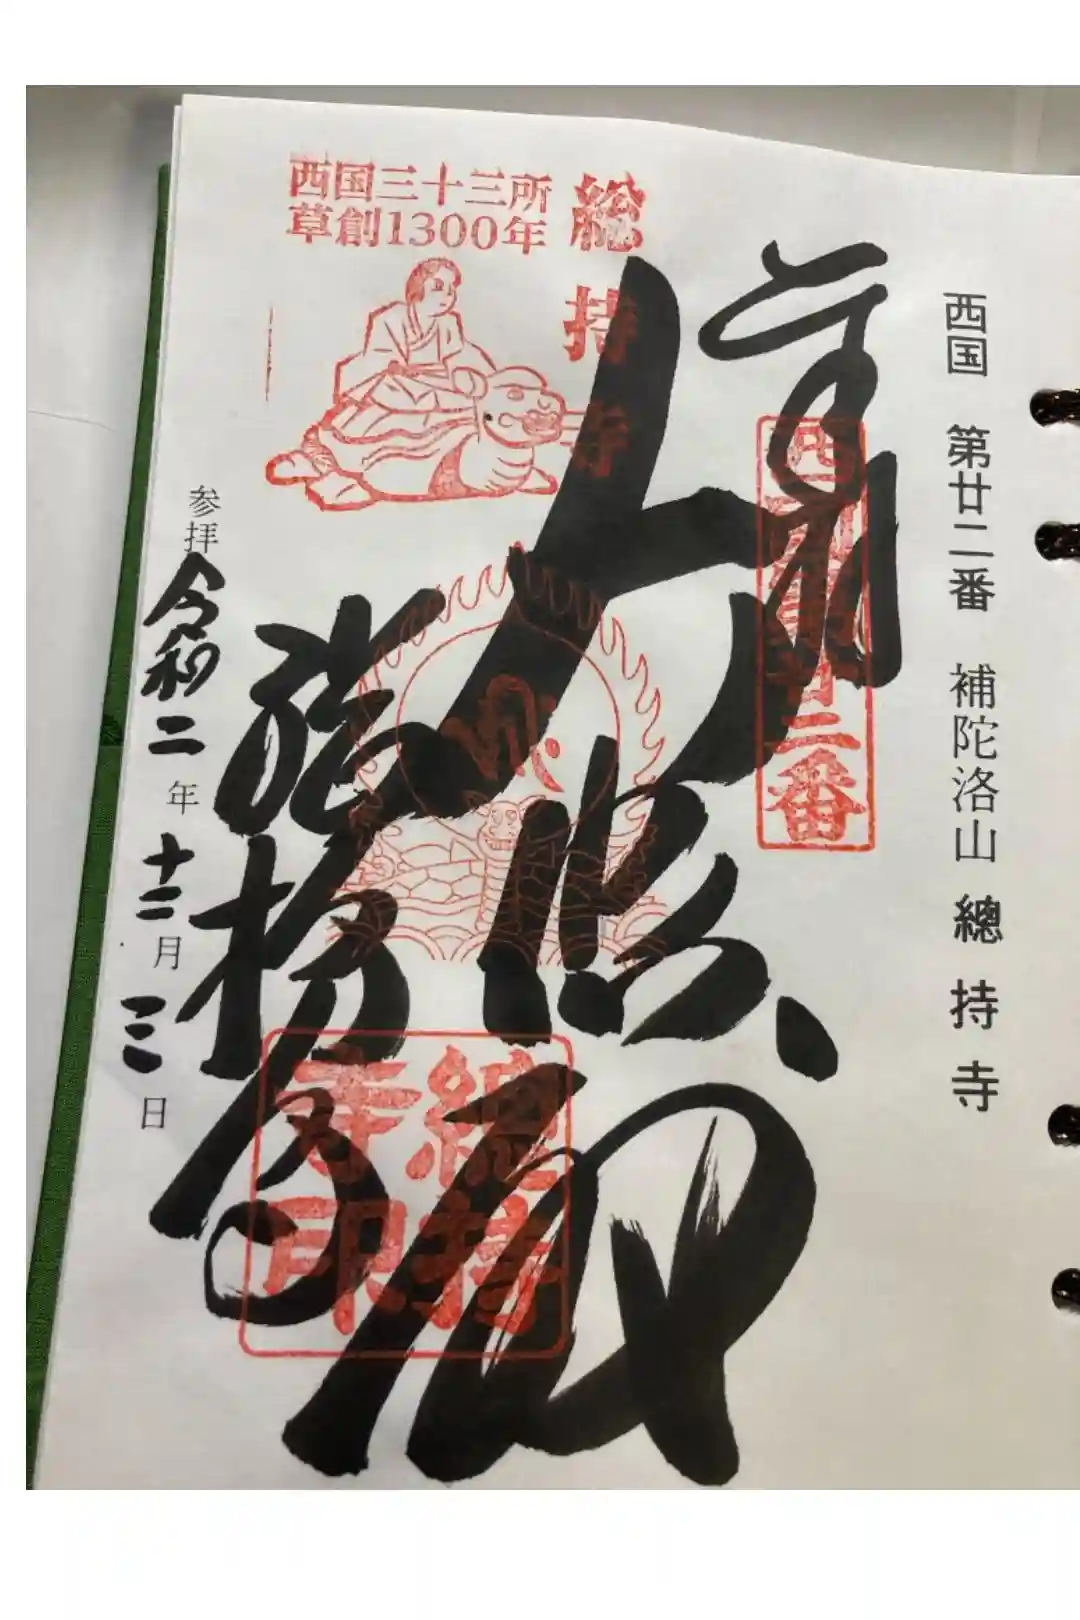 西国 第廿二番 補陀洛山 總持寺
西国第廿二番
総持寺
西国三十三所
草創1300年
總持寺
總持寺印
参拝 令和二年十二月三日